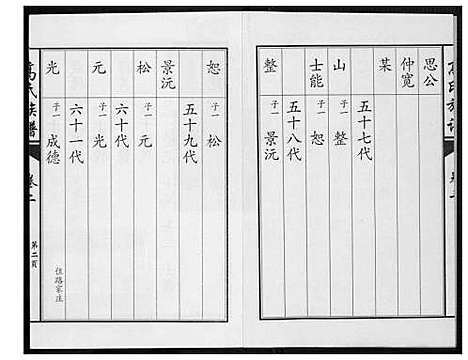 思公
仲寬
某
五十七代
山 子一 整
士能 子一 恕
五十八代
整 子一 景沅
恕 子一 松
五十九代
景沅
松 子一 元
六十代
元 子一 光
六十一代
光 子一 成德
住路家庄
萬氏族譜 卷二 第二頁